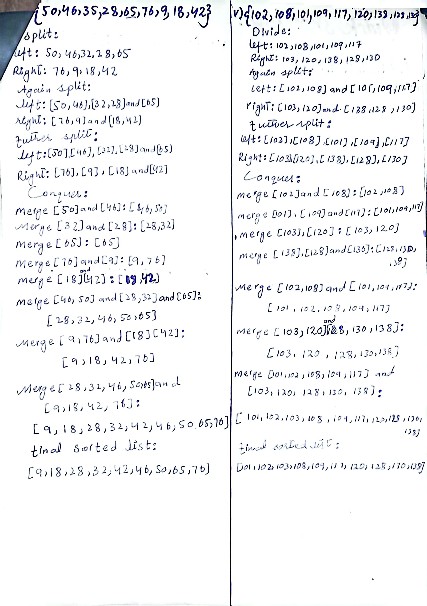 {50,46,35,28,65,76,9,18,42}
split:
left: 50,46,32,28,65
Right: 76,9,18,42
Again split:
left: [50,46],[32,28]and[65]
right: [76,9]and[18,42]
further split:
left:[50][46],[32],[28]and[65]
Right: [76],[9],[18]and[42]
Conquer:
merge [50]and[46]: [46,50]
merge [32]and[28]: [28,32]
merge [65]: [65]
merge [76]and[9]: [9,76]
merge [18]and[42]: [18,42]
merge [46,50] and[28,32]and[65]:
[28,32,46,50,65]
merge [9,76]and[18][42]:
[9,18,42,76]
merge[28,32,46,50,65]and
[9,18,42,76]:
[9,18,28,32,42,46,50,65,76]
final sorted list:
[9,18,28,32,42,46,50,65,76]
v){102,108,101,109,117,120,138,128,130}
Divide:
left: 102,108,101,109,117
Right: 103,120,138,128,130
Again split:
left: [102,108] and [101,109,117]
right: [103,120]and [138,128,130]
further split:
left: [102],[108].[101],[109],[117]
Right: [103][120],[138],[128],[130]
Conquer:
merge [102]and[108]: [102,108]
merge [101],[109]and[117]: [101,109,117]
merge [103],[120]: [103,120]
merge [138],[128]and[130]: [128,130,
138]
merge [102,108] and [101,109,117]:
[101,102,108,109,117]
merge [103,120]and[128,130,138]:
[103,120,128,130,138]
merge [101,102,108,109,117] and
[103,120,128,130,138]:
[101,102,103,108,109,117,120,128,130,
138]
final sorted list:
[101,102,103,108,109,117,120,128,130,138]